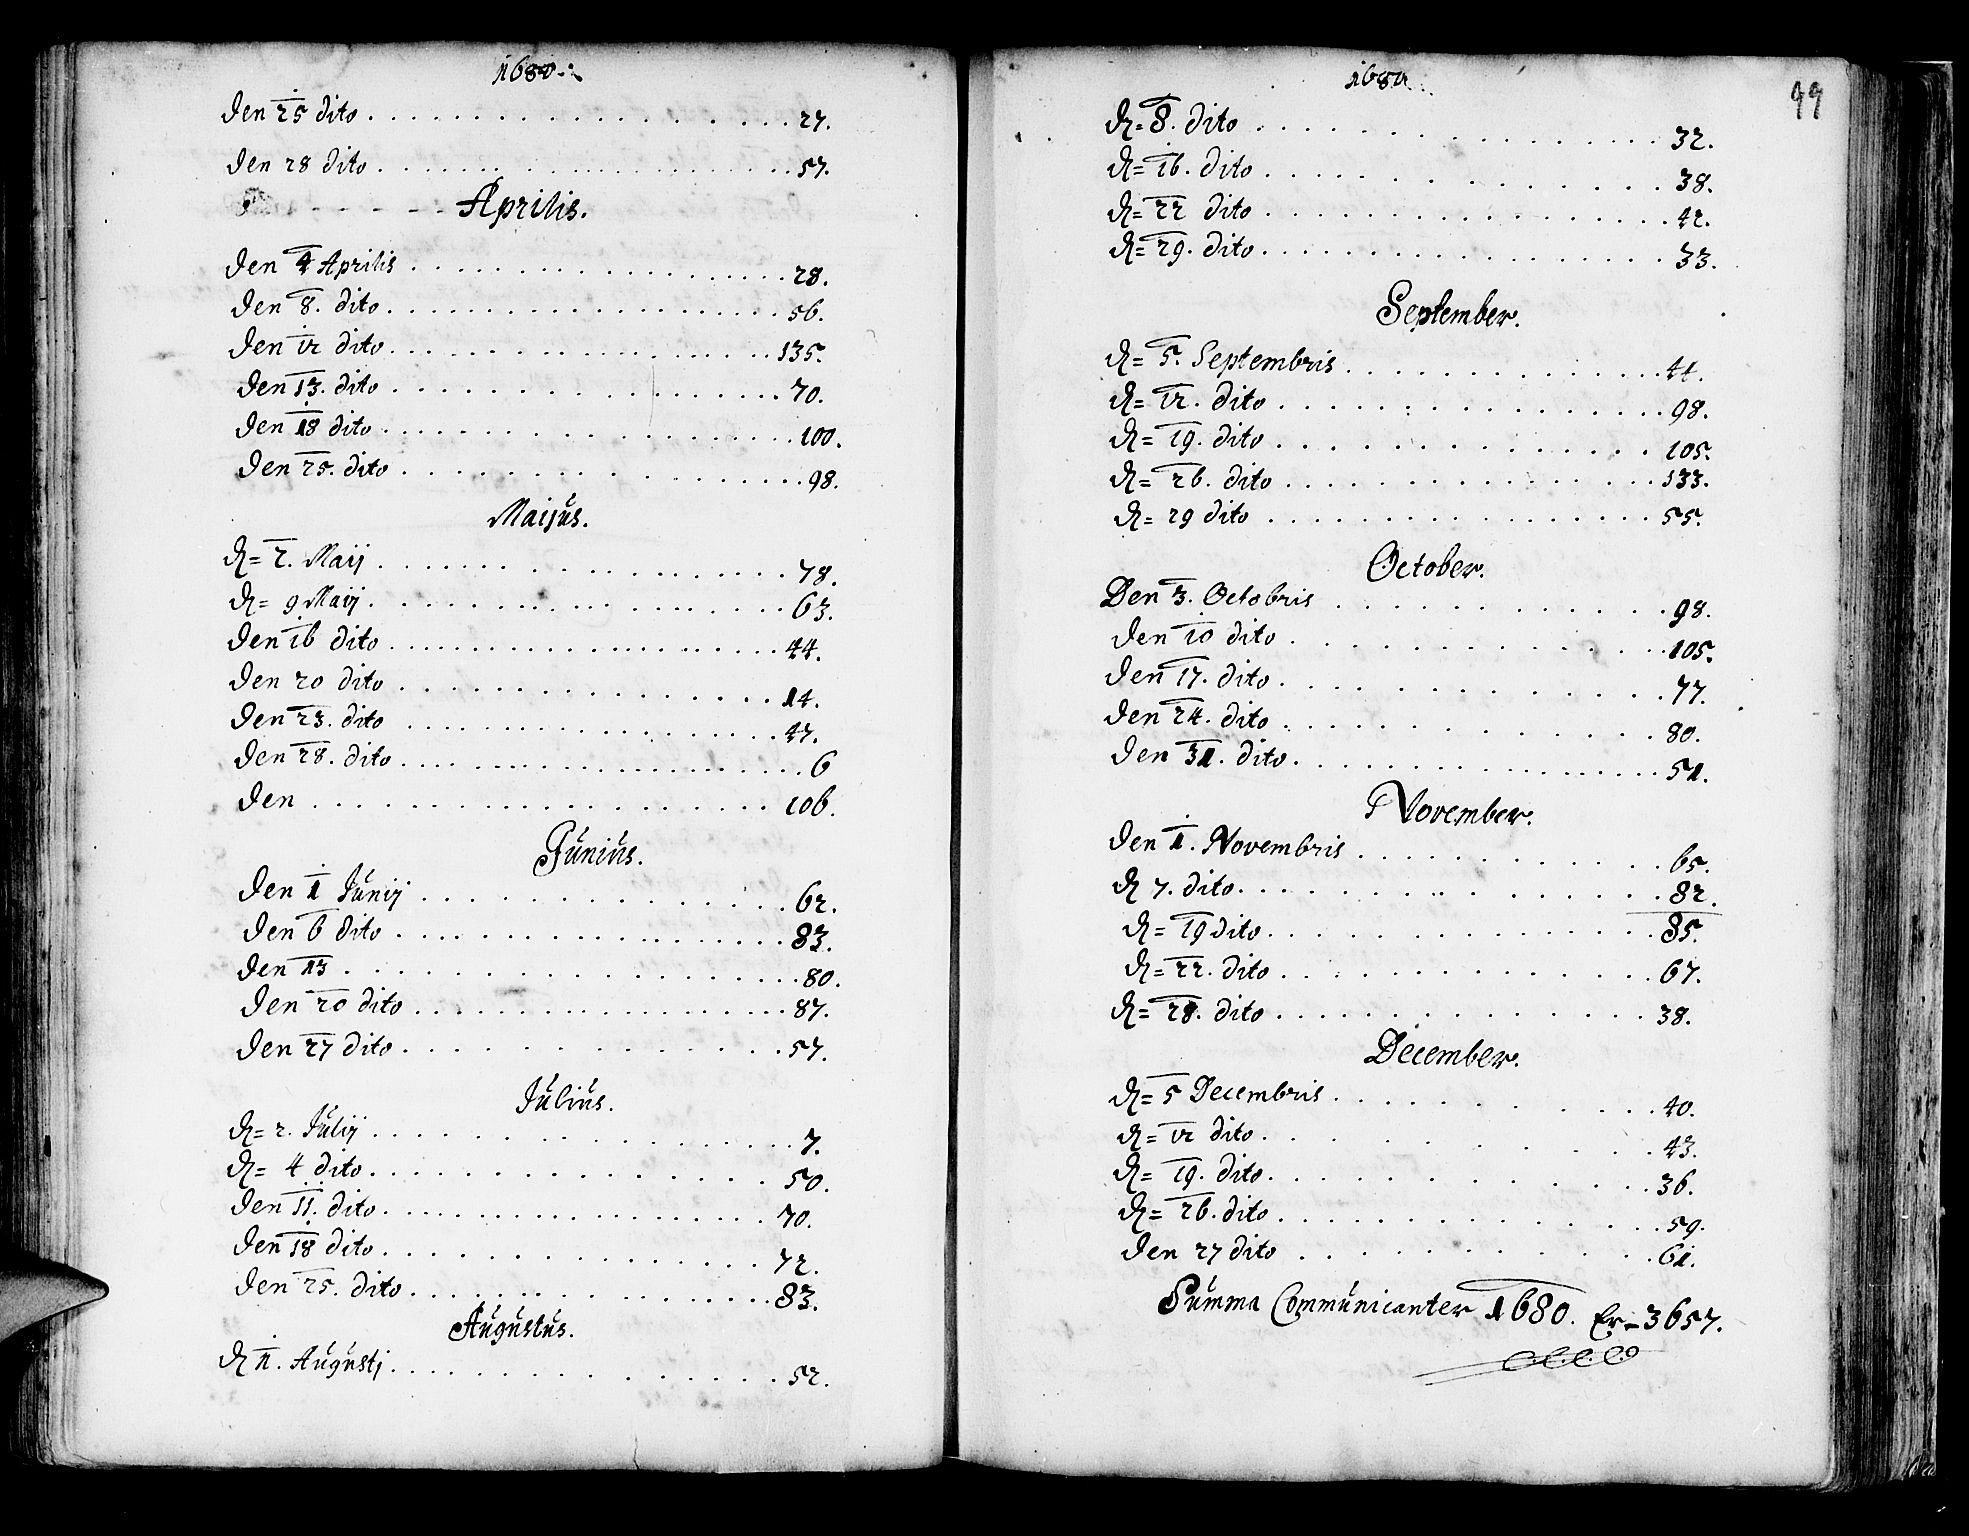 1680.
Den 25 dito . . . 27.
Den 28 dito . . . 57.
Aprilis.
Den 4 Aprilis . . . 28.
Den 8. dito . . . 56.
Den 12 dito . . . 135.
Den 13. dito . . . 70.
Den 18 dito . . . 100.
Den 25. dito . . . 98.
Maijus.
D= 2. Maij . . . 78.
D= 9 Maij . . . 63.
Den 16 dito . . . 44.
Den 20 dito . . . 14.
Den 23. dito . . . 47.
Den 28. dito . . . 6
Den . . . 106.
Junius.
Den 1 Junij . . . 62.
Den 6 dito . . . 83.
Den 13 . . . 80.
Den 20 dito . . . 87.
Den 27 dito . . . 57.
Julius.
D= 2. Julij . . . 7.
D= 4 dito . . . 50.
Den 11. dito . . . 70.
Den 18 dito . . . 72.
Den 25. dito . . . 83.
Augustus.
D 1. Augusti . . . 52.
1680
99
D= 8. dito . . . 32.
D= 16. dito . . . 38.
D= 22 dito . . . 42.
D= 29. dito . . . 33.
September.
D= 5. Septembris . . . 44.
D= 12. dito . . . 98.
D= 19. dito . . . 105.
D= 26. dito . . . 133.
D= 29 dito . . . 55.
October.
Den 3. Octobris . . . 98.
Den 10 dito . . . 105.
Den 17. dito . . . 77.
Den 24. dito . . . 80.
Den 31. dito . . . 51.
November.
Den 1. Novembris . . . 65.
D 7. dito . . . 82.
D= 19 dito . . . 85.
D= 22. dito . . . 67.
D= 28. dito . . . 38.
December.
D= 5 Decembris . . . 40.
D= 12 dito . . . 43.
D= 19. dito . . . 36.
D= 26. dito . . . 59.
Den 27 dito . . . 61.
Summa Communicanter 1680. Er= 3657.